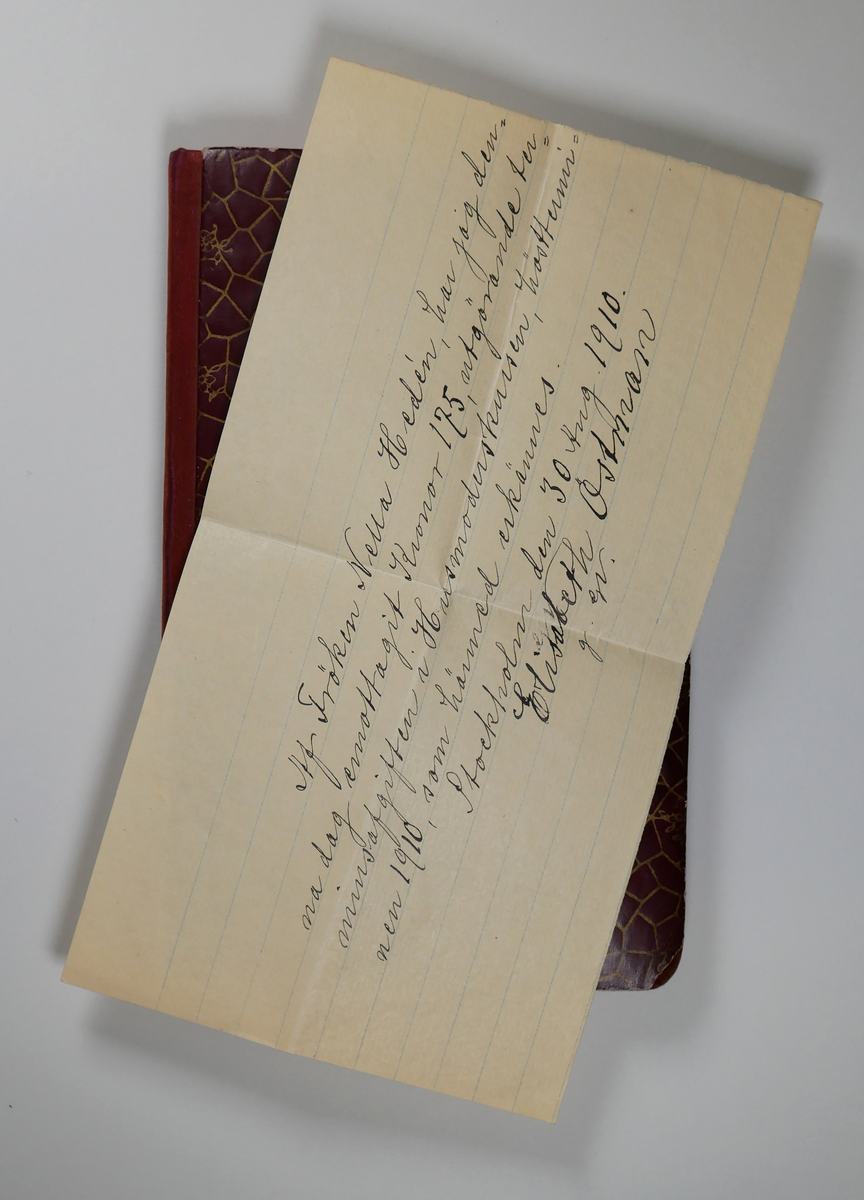 Af Fröken Nella Hedén, har jag den=
na dag emottagit Kronor 175, utgörande ter=
minsafgiften i Husmoderskursen, hösttermi=
nen 1910, som härmed erkännes.
Stockholm den 30 Aug. 1910.
Elisabeth Östman
g. W.